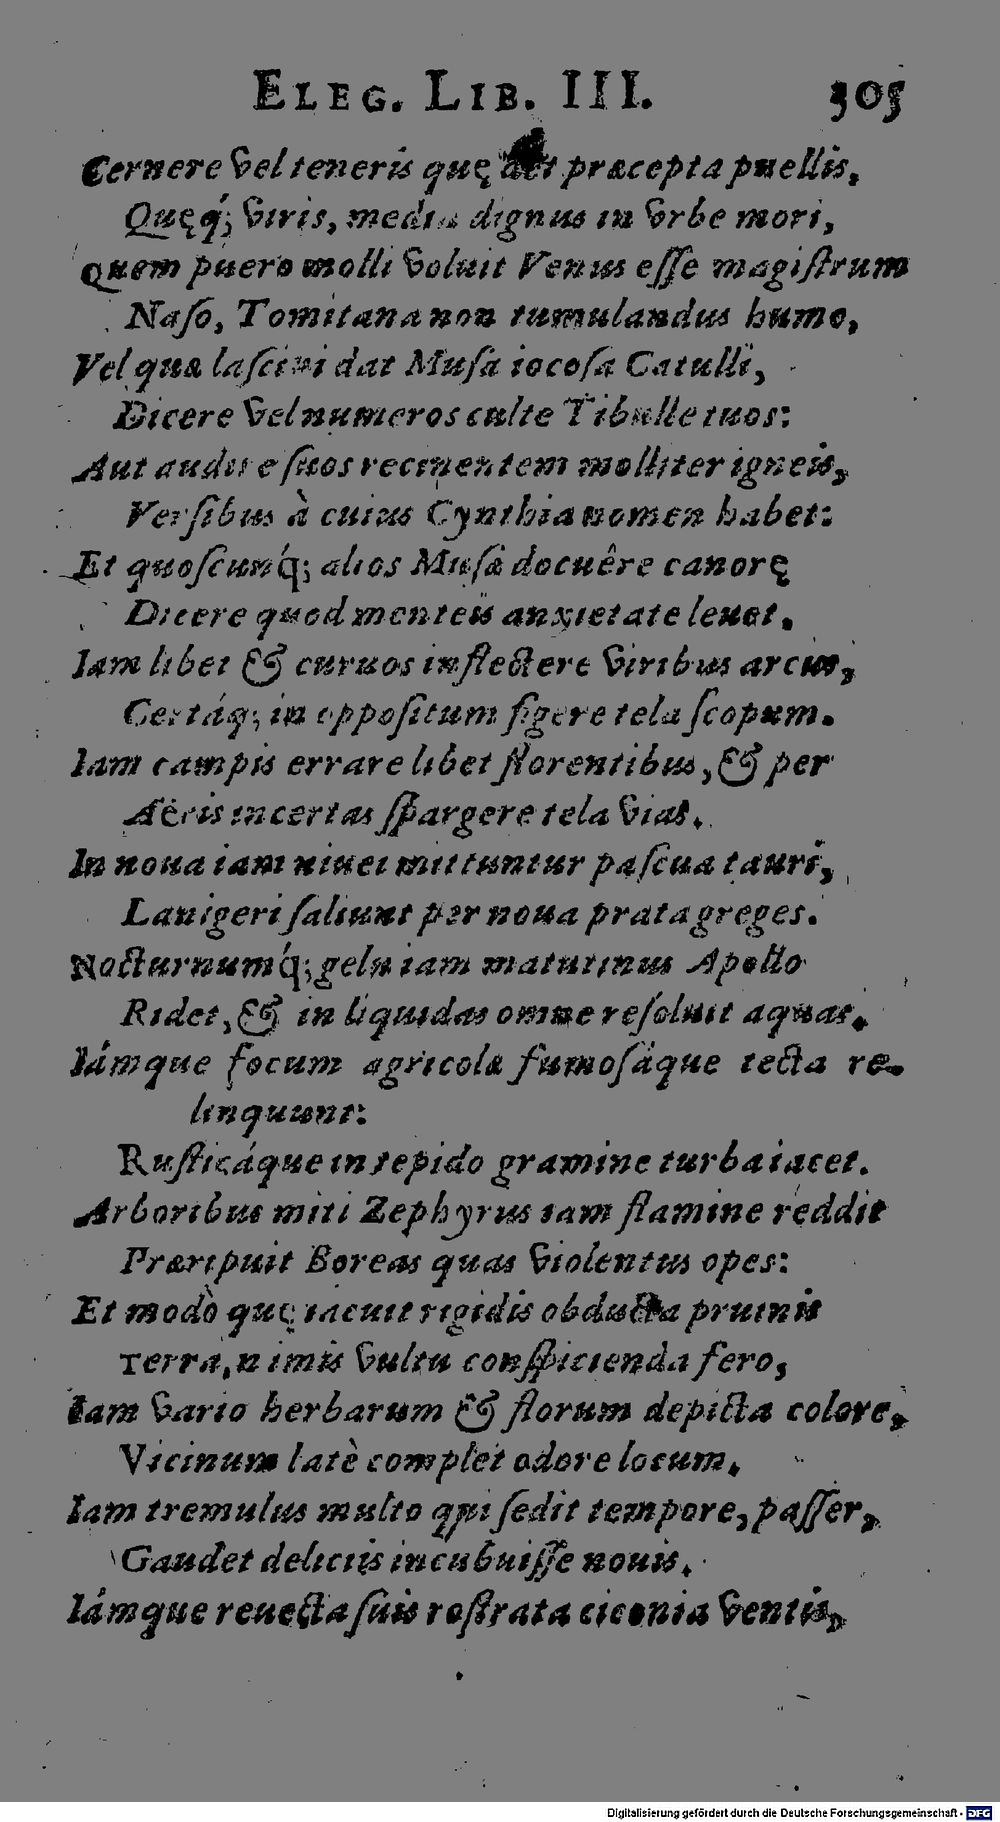 ELEG. LIB. III. 305
Cernere vel teneris quę det præcepta puellis,
Quęq́; viris, media dignus in vrbe mori,
Quem puero molli voluit Venus eſſe magiſtrum
Naſo, Tomitana non tumulandus humo,
Vel quæ laſciui dat Muſa iocoſa Catulli,
Dicere vel numeros culte Tibulle tuos:
Aut audire ſuos recinentem molliter igneis,
Verſibus à cuius Cynthia nomen habet:
Et quoſcunq́; alios Muſæ docuêre canorę
Dicere quod menteis anxietate leuet.
Iam libet & curuos inflectere viribus arcus,
Certáq; in oppoſitum figere tela ſcopum.
Iam campis errare libet florentibus, & per
Aëris incertas ſpargere tela vias.
In noua iam niuei mittuntur paſcua tauri,
Lanigeri ſaliunt per noua prata greges.
Nocturnumq́; gelu iam matutinus Apollo
Ridet, & in liquidas omne reſoluit aquas.
Iámque focum agricolæ fumoſáque tecta re-
linquunt:
Ruſticáque in tepido gramine turba iacet.
Arboribus miti Zephyrus iam flamine reddit
Præripuit Boreas quas violentus opes:
Et modò quę iacuit rigidis obducta pruinis
Terra, nimis vultu conſpicienda fero,
Iam vario herbarum & florum depicta colore,
Vicinum latè complet odore locum.
Iam tremulus multo qui ſedit tempore, paſſer,
Gaudet deliciis incubuiſſe nouis.
Iámque reuecta ſuis roſtrata ciconia ventis,
Digitalisierung gefördert durch die Deutsche Forschungsgemeinschaft - DFG